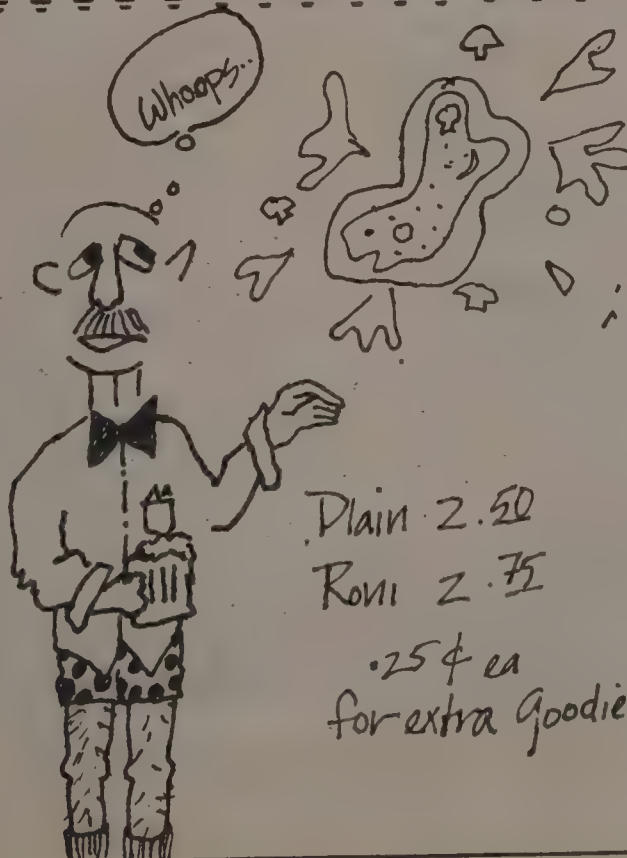 Whoops..
Plain 2.50
Roni 2.75
.25¢ ea
for extra Goodie